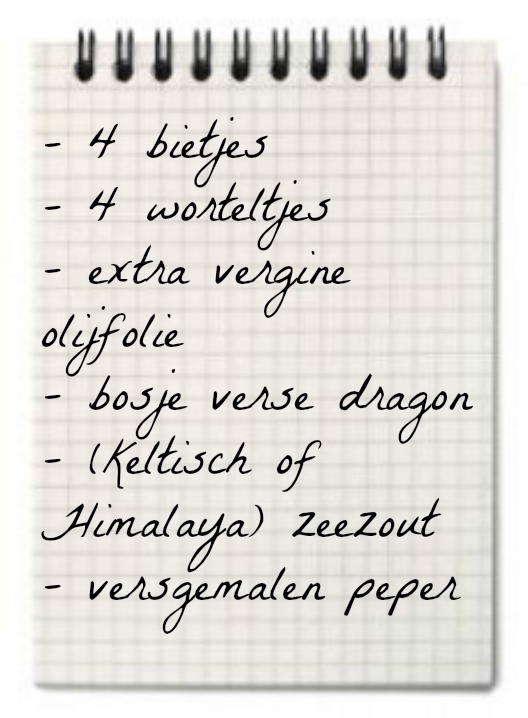 - 4 bietjes
- 4 worteltjes
- extra vergine
olijfolie
- bosje verse dragon
- (Keltisch of
Himalaya) zeezout
- versgemalen peper